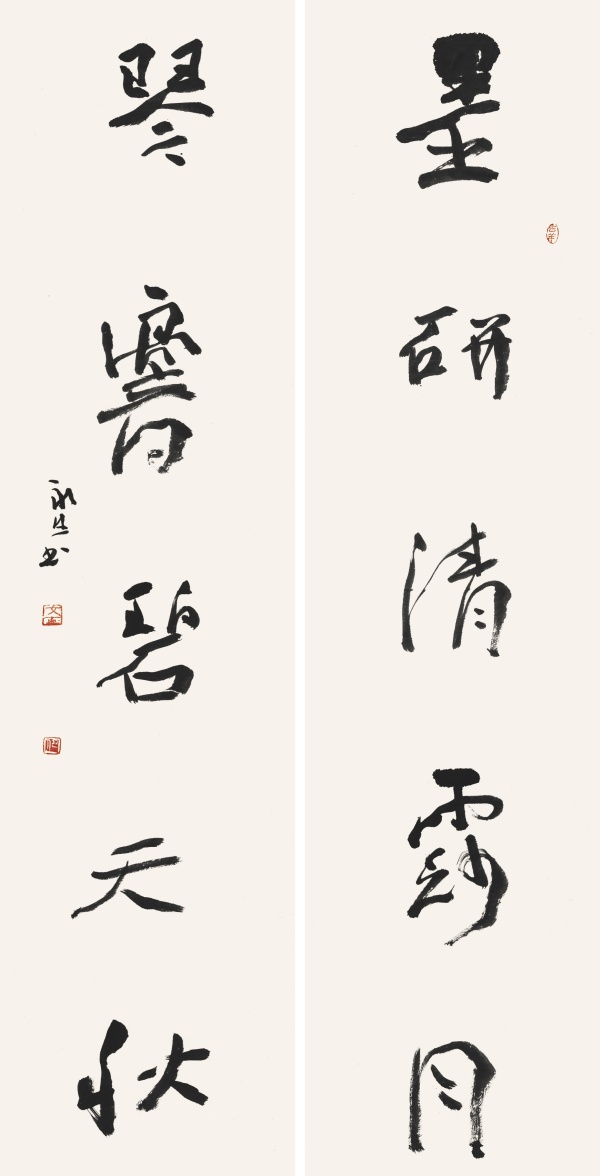 墨研清露月
琴響碧天秋
永 书